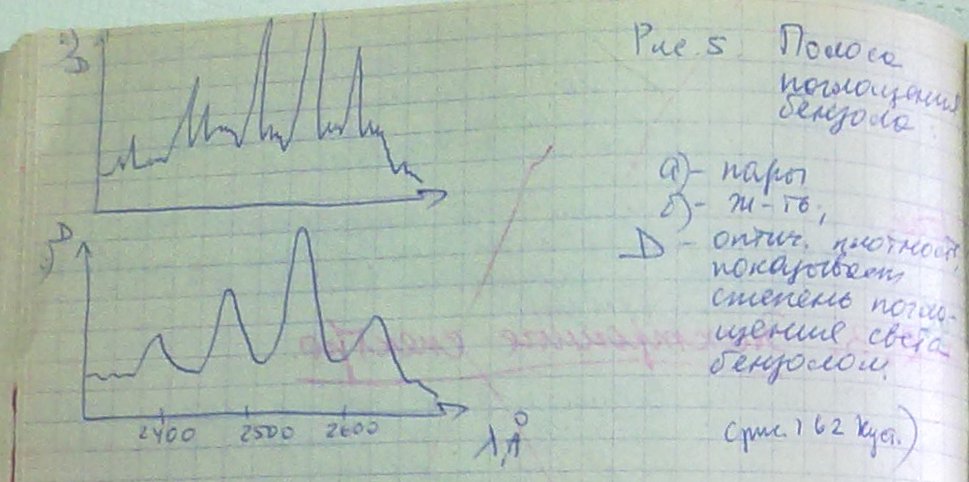 а) D
Рис. 5 Полоса
поглощения
бензола.
а) - пары
б) - ж-ть;
D - оптич. плотность,
показывает
степень погло-
щения света
бензолом.
D
2400 2500 2600
λ, Å
(рис. 162 Куст.)